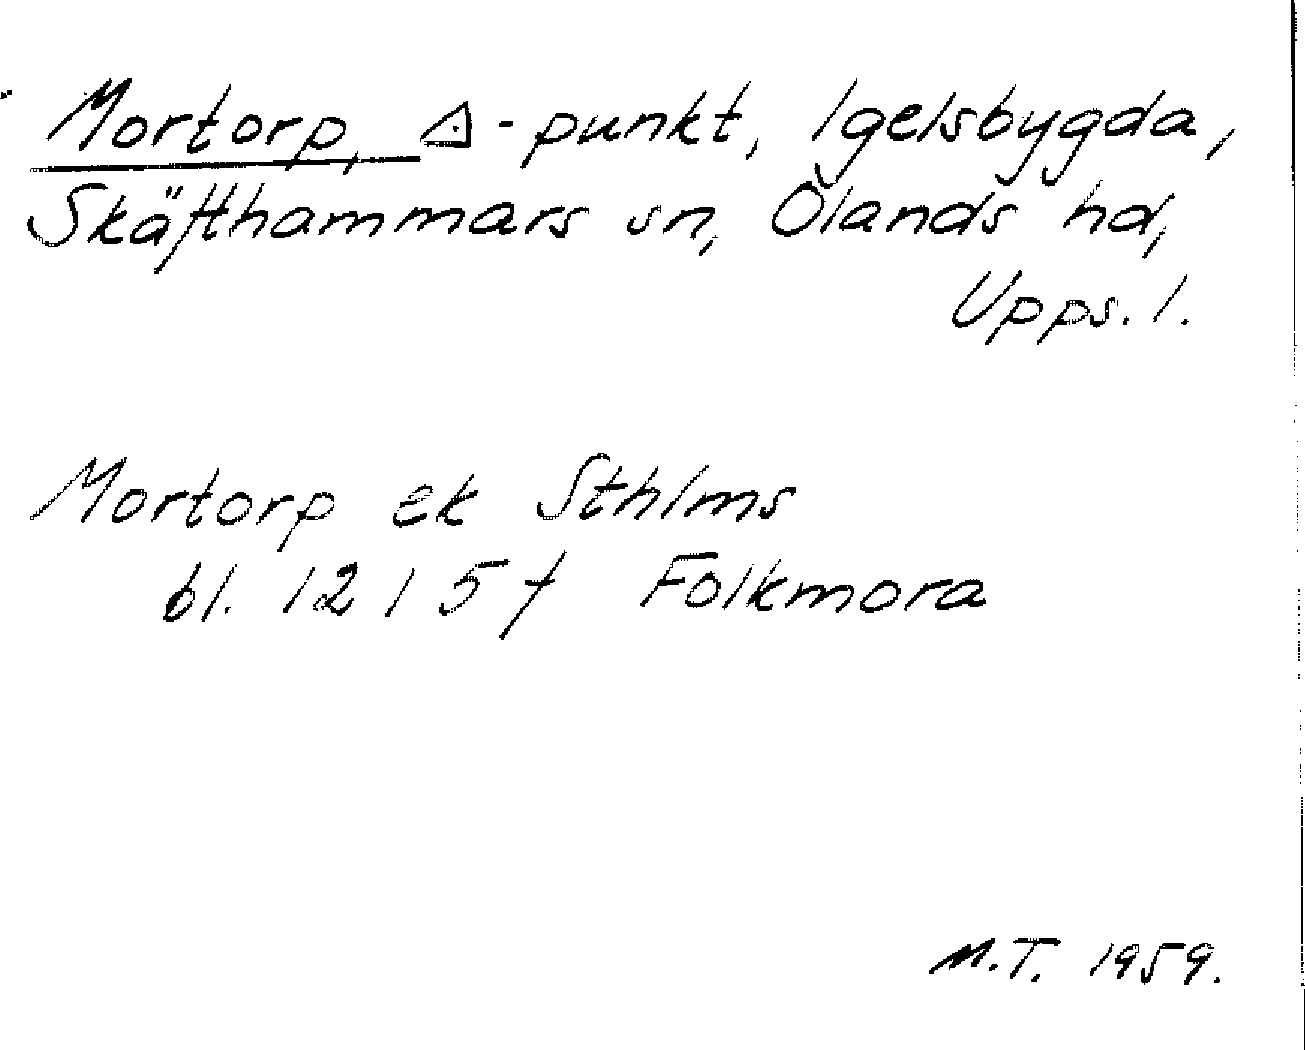 Mortorp, △-punkt, Igelsbygda,
Skäfthammars sn, Ölands hd,
Upps. l.
Mortorp ek Sthlms
bl. 12 I 5 f Folkmora
M.T. 1959.